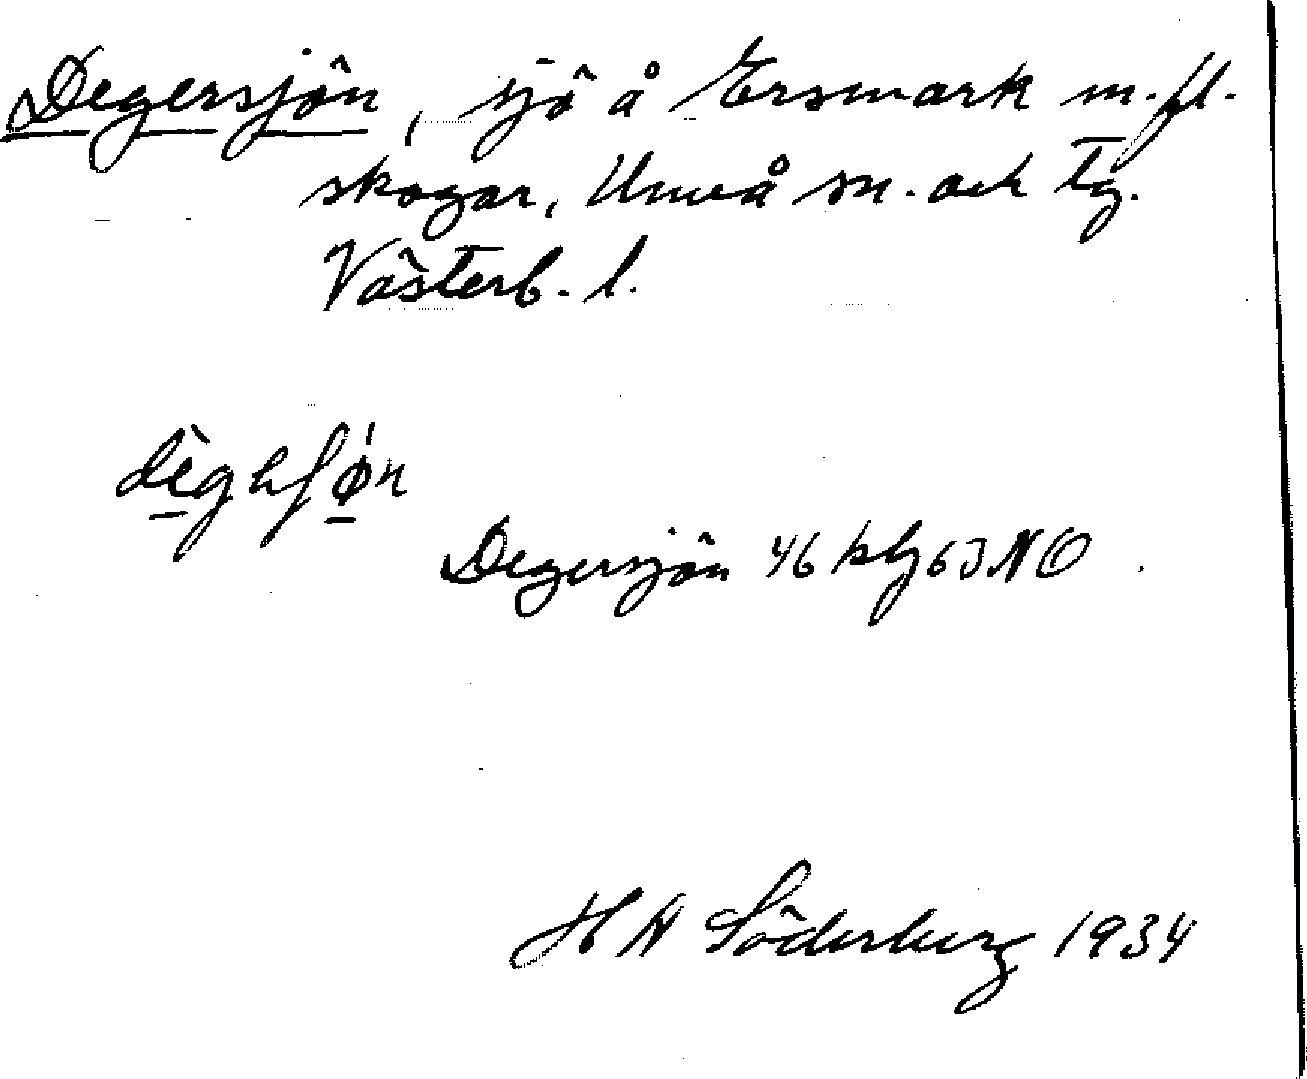 Degersjön, sjö å Ersmark m.fl.
skogar, Umeå sn. och tg.
Västerb. l.
Degersjön 46 63 NO
H A Söderberg 1934